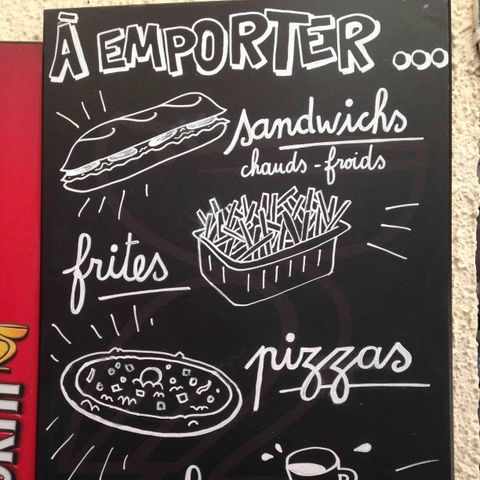 À EMPORTER ...
sandwichs
chauds - froids
frites
pizzas